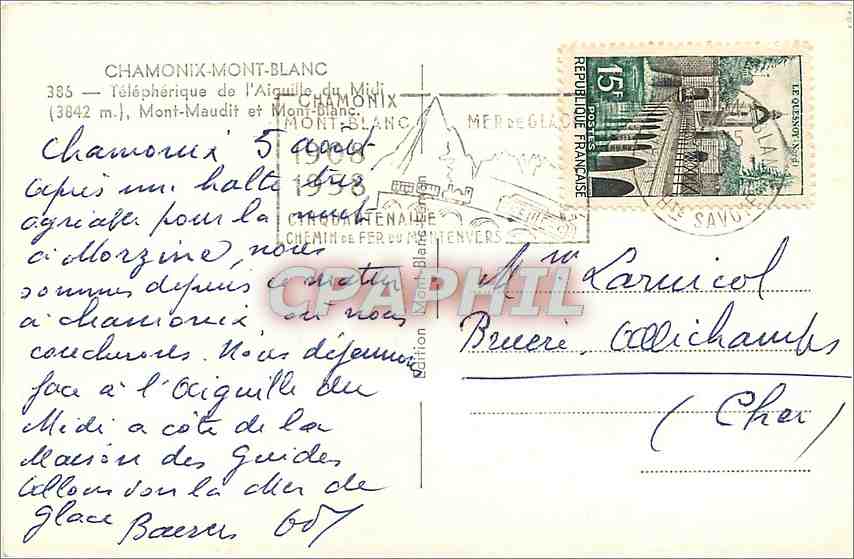 CHAMONIX-MONT-BLANC
385 — Téléphérique de l'Aiguille du Midi
(3842 m.), Mont-Maudit et Mont-Blanc.
CHAMONIX
MONT-BLANC
MER DE GLACE
1908
1958
CINQUANTENAIRE
CHEMIN DE FER DU MONTENVERS
15F
POSTES
RÉPUBLIQUE FRANÇAISE
LE QUESNOY (Nord)
HTE SAVOIE
Chamonix 5 août
après une halte très
agréable pour la nuit
à Morzine, nous
sommes depuis ce matin
à Chamonix, où nous
coucherons. Nous déjeunons
face à l'Aiguille du
Midi a côté de la
Maison des Guides
Allons voir la Mer de
glace Baisers
Edition Mont-Blanc
CPAPHIL
Larnicol
Bruère, Allichamps
(Cher)